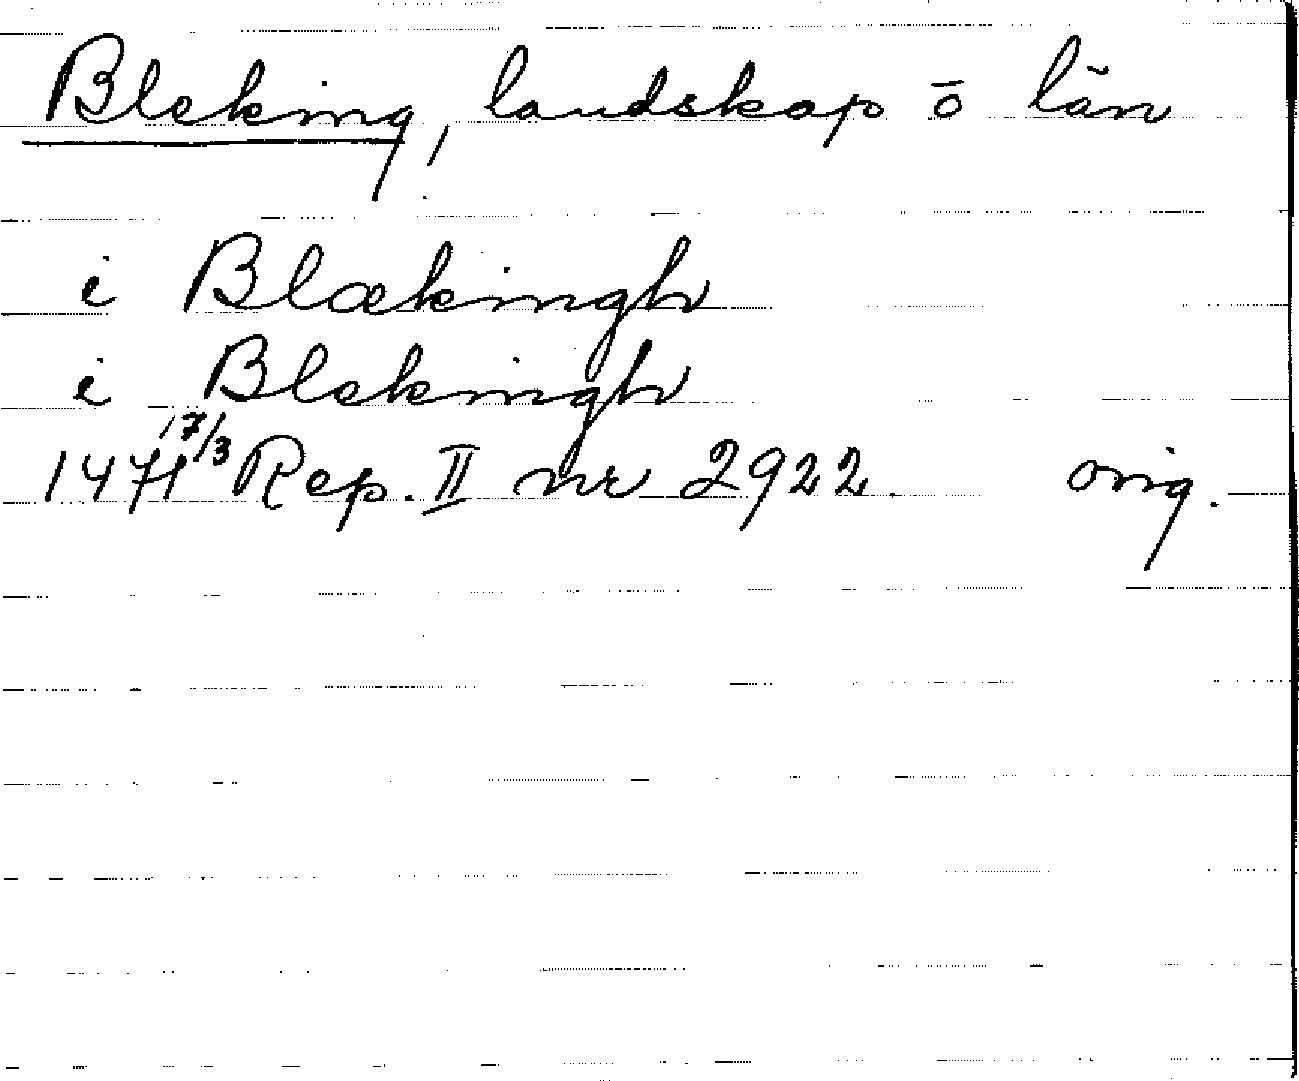 Bleking, landskap ō län
i Blækingh
i Blekingh
1471 17/3 Rep. II nr 2922. orig.